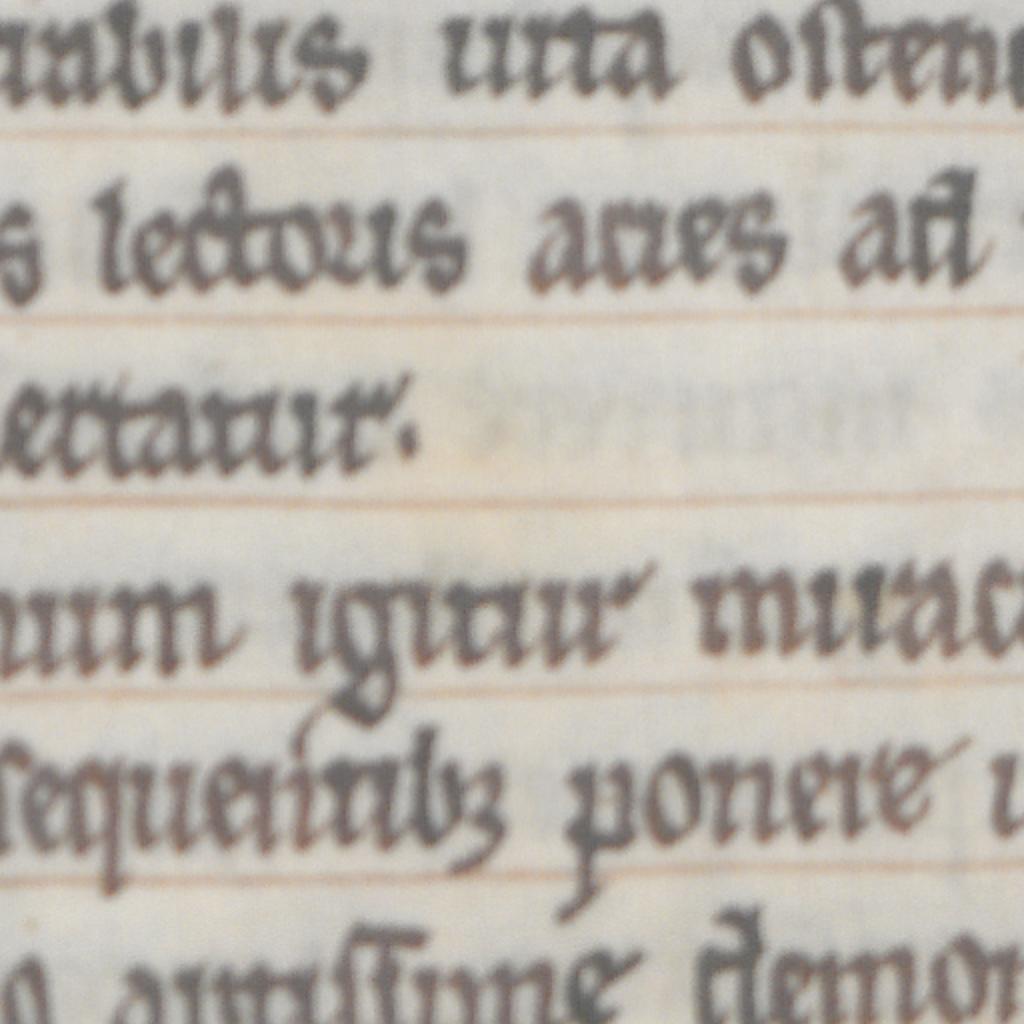 uita osten
s lectoris acies ad
ertatur.
num igitur mirac
sequentibꝫ ponere
demon